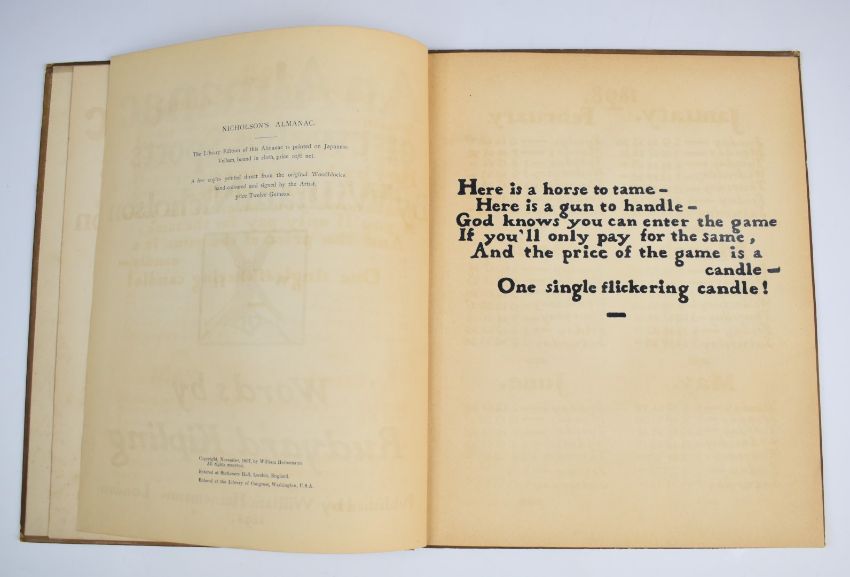 NICHOLSON'S ALMANAC.
The Library Edition of this Almanac is printed on Japanese
Vellum, bound in cloth, price
A few copies printed direct from the original Woodblocks,
hand-coloured and signed by the Artist,
price Twelve Guineas.
Copyright, November, 1897, by William Heinemann
All rights reserved.
Entered at Stationers Hall, London, England.
Entered at the Library of Congress, Washington, U.S.A.
Here is a horse to tame –
Here is a gun to handle –
God knows you can enter the game
If you'll only pay for the same,
And the price of the game is a
candle –
One single flickering candle!